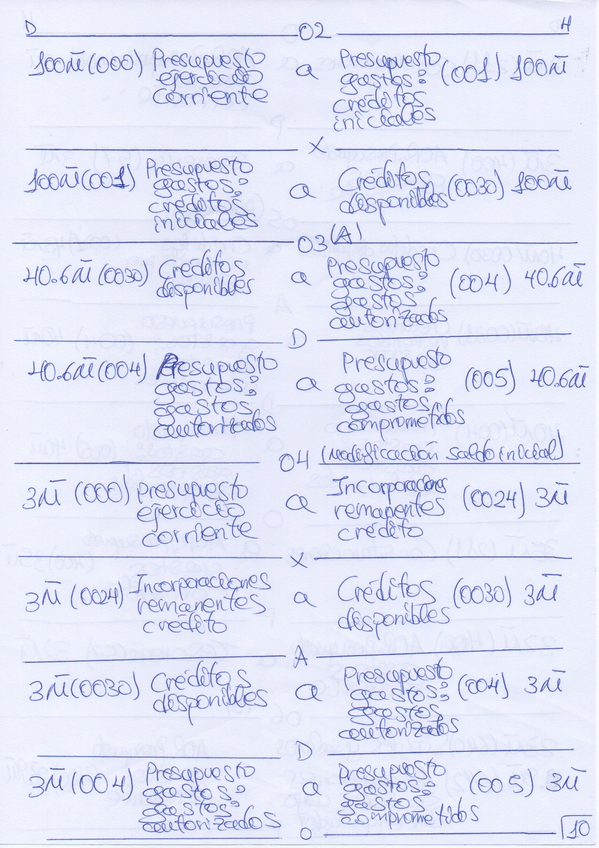 D 02 H
100m̄ (000) Presupuesto a Presupuesto (001) 100m̄
ejercicio gastos:
corriente créditos
iniciales
X
100m̄ (001) Presupuesto a Créditos (0030) 100m̄
gastos: disponibles
créditos
iniciales
03 (A)
40.6m̄ (0030) Créditos a Presupuesto (004) 40.6m̄
disponibles gastos:
gastos
autorizados
D
40.6m̄ (004) Presupuesto a Presupuesto (005) 40.6m̄
gastos: gastos:
gastos gastos
autorizados comprometidos
04 (modificación saldo inicial)
3m̄ (000) Presupuesto a Incorporaciones (0024) 3m̄
ejercicio remanentes
corriente crédito
X
3m̄ (0024) Incorporaciones a Créditos (0030) 3m̄
remanentes disponibles
crédito
A
3m̄ (0030) Créditos a Presupuesto (004) 3m̄
disponibles gastos:
gastos
autorizados
D
3m̄ (004) Presupuesto a Presupuesto (005) 3m̄
gastos: gastos:
gastos gastos
autorizados comprometidos
O 10